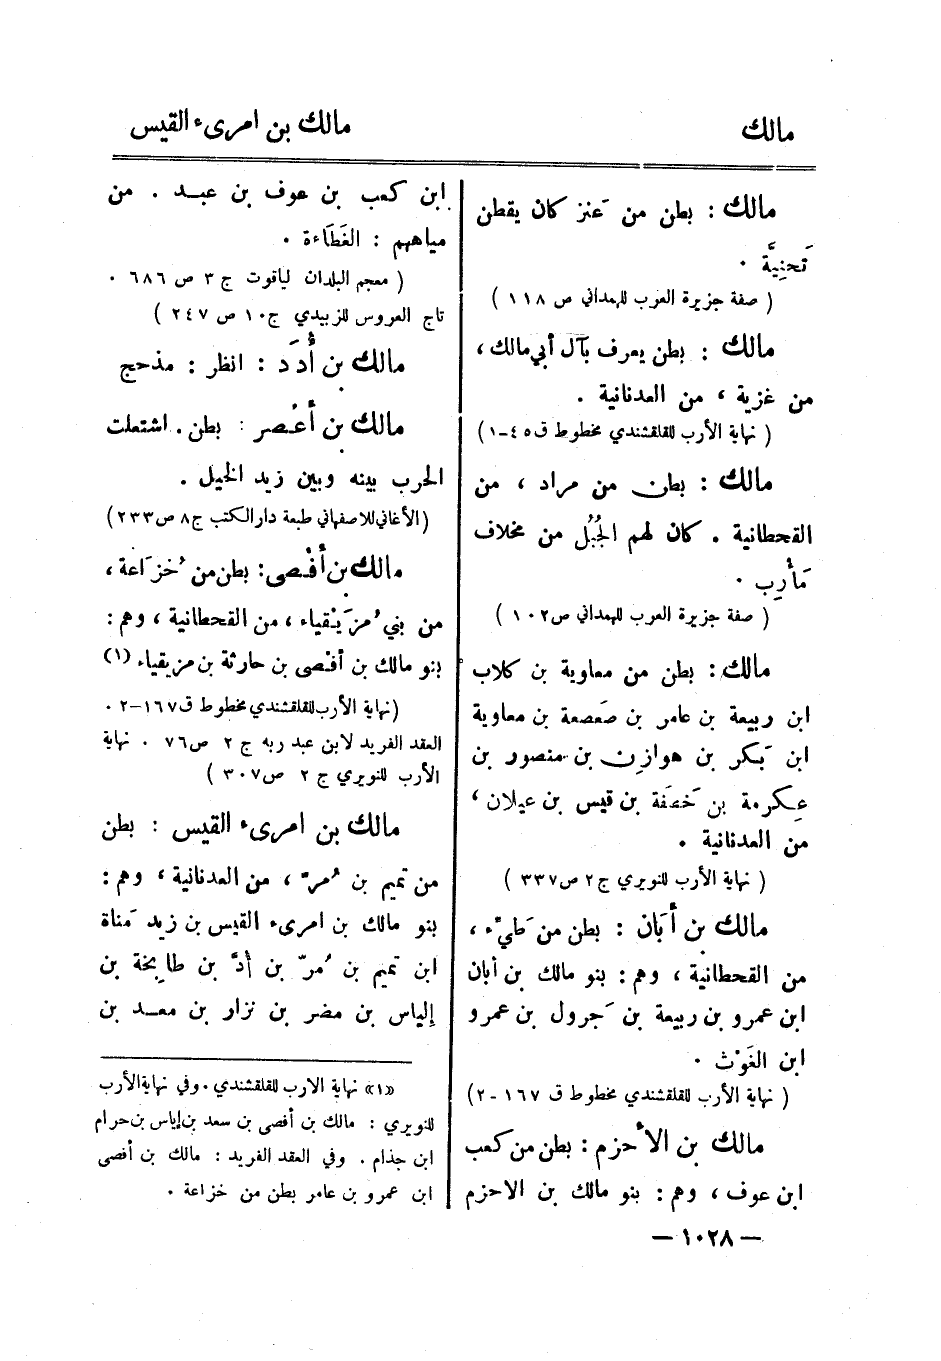 مالك
مالك بن امرىء القيس
مالك : بطن من عَنز كان يقطن
تَحنِيَّة .
( صفة جزيرة العرب للهمداني ص ١١٨ )
مالك : بطن يعرف بآل أبي مالك ،
من غزية ، من العدنانية .
( نهاية الأرب للقلقشندي مخطوط ق ٤٥-١ )
مالك : بطن من مراد ، من
القحطانية . كان لهم الجُبُل من مخلاف
مَأرِب .
( صفة جزيرة العرب للهمداني ص ١٠٢ )
مالك : بطن من معاوية بن كلاب
ابن ربيعة بن عامر بن صَعصعة بن معاوية
ابن بَكر بن هوازن بن منصور بن
عِكرمة بن خَصَفة بن قيس بن عيلان ،
من العدنانية .
( نهاية الأرب للنويري ج ٢ ص ٣٣٧ )
مالك بن أَبَان : بطن من طَيّء ،
من القحطانية ، وهم : بنو مالك بن أبان
ابن عمرو بن ربيعة بن جَرول بن عمرو
ابن الغَوْث .
( نهاية الأرب للقلقشندي مخطوط ق ١٦٧ -٢ )
مالك بن الأَحزم : بطن من كعب
ابن عوف ، وهم : بنو مالك بن الاحزم
ابن كعب بن عوف بن عبد . من
مياههم : الغَطَاءة .
( معجم البلدان لياقوت ج ٣ ص ٦٨٦ .
تاج العروس للزبيدي ج ١٠ ص ٢٤٧ )
مالك بن أُدَد : انظر : مذحج
مالك بن أَعْصر : بطن . اشتعلت
الحرب بينه وبين زيد الخيل .
( الأغاني للاصفهاني طبعة دار الكتب ج ٨ ص ٢٣٣ )
مالك بن أَفْصى : بطن من خُزَاعة ،
من بني مُزَيْقياء ، من القحطانية ، وهم :
بنو مالك بن أفصى بن حارثة بن مزيقياء (١)
( نهاية الأرب للقلقشندي مخطوط ق ١٦٧-٢ .
العقد الفريد لابن عبد ربه ج ٢ ص ٧٦ . نهاية
الأرب للنويري ج ٢ ص ٣٠٧ )
مالك بن امرىء القيس : بطن
من تميم بن مُرّ ، من العدنانية ، وهم :
بنو مالك بن امرىء القيس بن زيد مَناة
ابن تميم بن مُرّ بن أدّ بن طابِخة بن
إلياس بن مضر بن نزار بن معد بن
«١» نهاية الارب للقلقشندي . وفي نهاية الأرب
للنويري : مالك بن أفصى بن سعد بن إياس بن حرام
ابن جذام . وفي العقد الفريد : مالك بن أفصى
ابن عمرو بن عامر بطن من خزاعة .
— ١٠٢٨ —